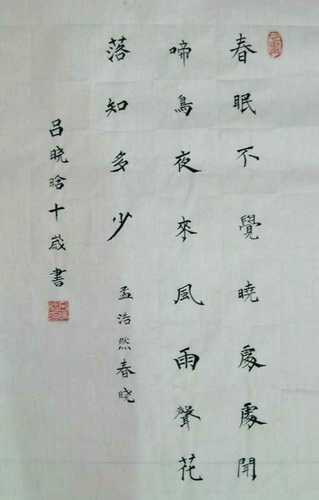 春眠不覺曉處處聞
啼鳥夜來風雨聲花
落知多少
孟浩然春晓
吕晓晗十歲書